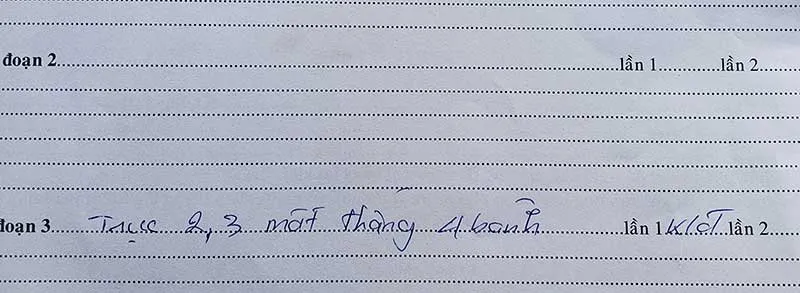 đoạn 2 lần 1 lần 2
đoạn 3 Trục 2, 3 mất thắng 4 banh lần 1 K/ĐT lần 2